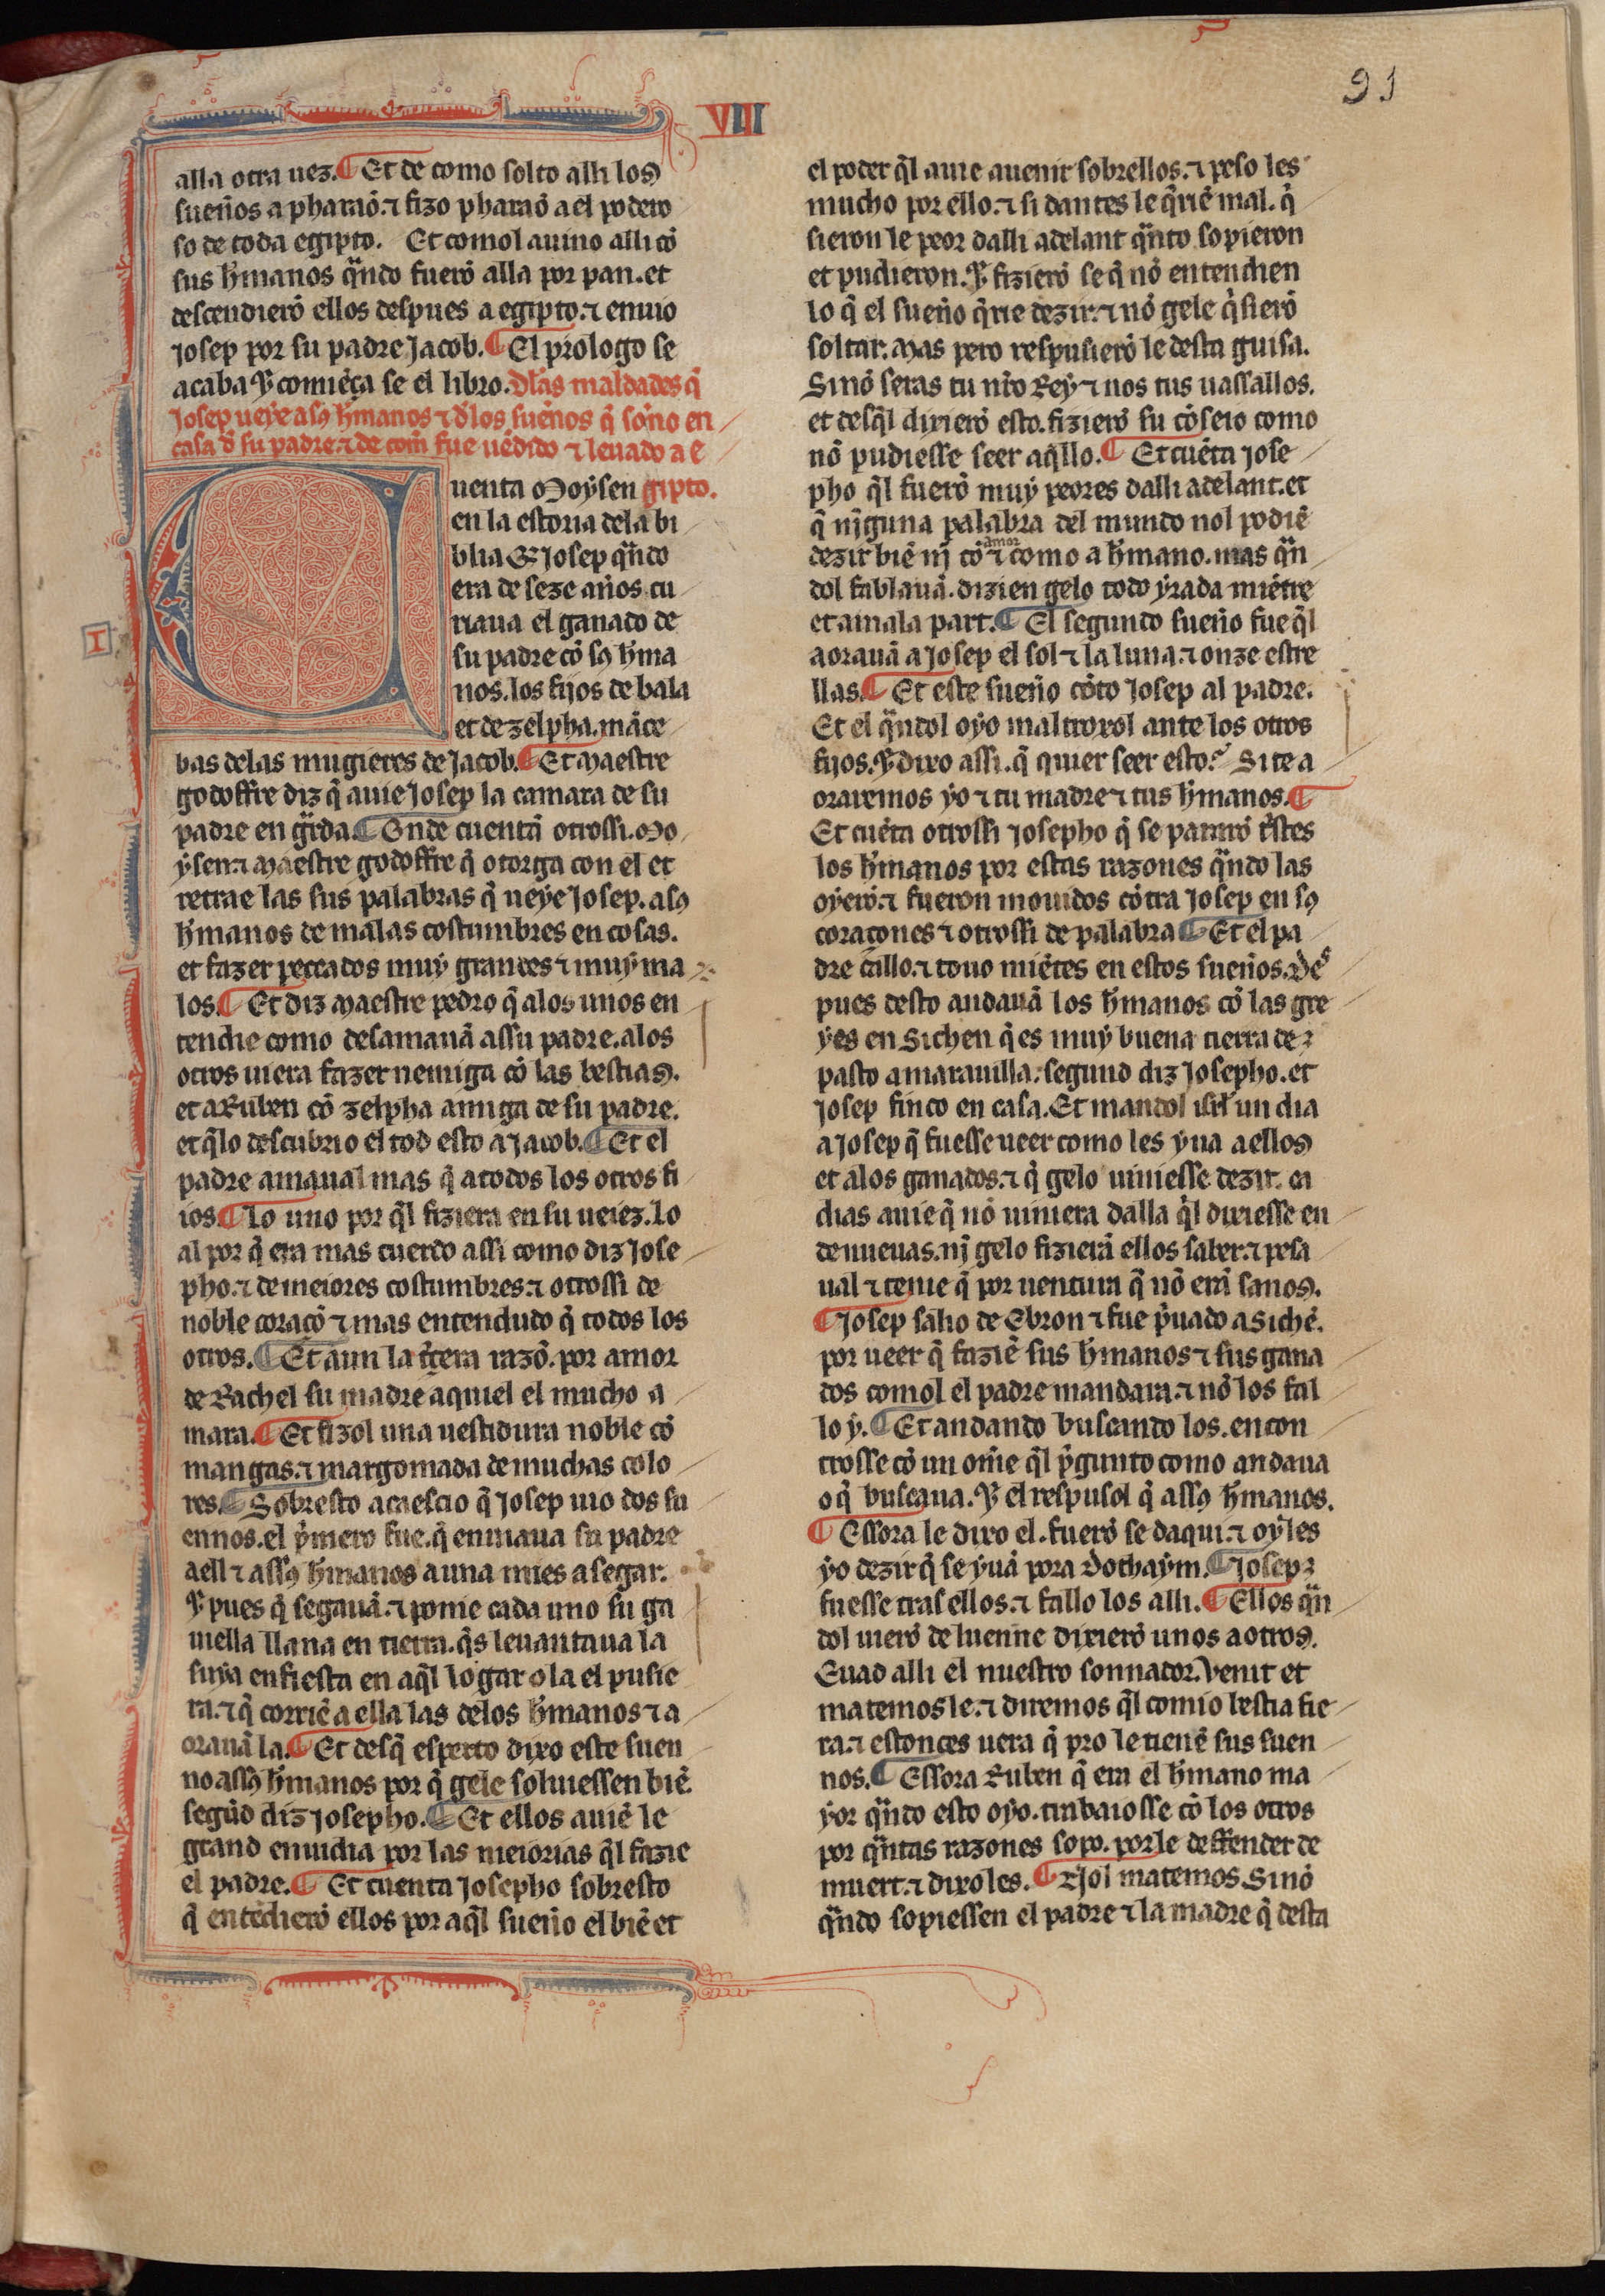 VIII
91
alla otra uez. ¶ Et de como solto alli los
sueños a pharaõ. ⁊ fizo pharaõ a el podero
so de toda egipto. Et comol auino alli cõ
sus h̃manos q̃ndo fuerõ alla por pan. et
descendierõ ellos despues a egipto. ⁊ enuio
Josep por su padre Jacob. ¶ El prologo se
acaba ⁊ comiẽça se el libro. Dlas maldades q̃
Josep ueye a sꝯ h̃manos ⁊ dlos sueños q̃ soño en
casa d̃ su padre. ⁊ de com̃ fue uẽdido ⁊ leuado a e
gipto.
I
Cuenta Moÿsen
en la estoria dela bi
blia Q̃ Josep q̃ndo
era de seze años. cu
riaua el ganado de
su padre cõ sꝯ h̃ma
nos. los fijos de bala
et de zelpha. mãce
bas delas mugieres de Jacob. ¶ Et Maestre
godoffre diz q̃ auie Josep la camara de su
padre en g̃rda. ¶ Onde cuentã otrossi. Mo
ÿsen. ⁊ Maestre godoffre q̃ otorga con el et
retrae las sus palabras q̃ ueye Josep. a sꝯ
h̃manos de malas costumbres en cosas.
et fazer peccados muÿ grandes ⁊ muÿ ma
los. ¶ Et diz Maestre pedro q̃ alos unos en
tendie como desamauã assu padre. alos
otros uiera fazer nemiga cõ las bestias.
et a Ruben cõ zelpha amiga de su padre.
et q̃lo descubrio el tod esto a Jacob. ¶ Et el
padre amaual mas q̃ a todos los otros fi
ios. ¶ Lo uno por q̃l fiziera en su ueiez. Lo
al por q̃ era mas cuerdo assi como diz Jose
pho. ⁊ de meiores costumbres. ⁊ otrossi de
noble coraçõ ⁊ mas entendudo q̃ todos los
otros. ¶ Et aun la t̃cera razõ. por amor
de Rachel su madre aquiel el mucho a
mara. ¶ Et fizol una uestidura noble cõ
mangas. ⁊ margomada de muchas colo
res. ¶ Sobresto acaescio q̃ Josep uio dos su
ennos. el p̃mero fue. q̃ enuiaua su padre
aell ⁊ assꝯ h̃manos a una mies a segar.
⁊ pues q̃ segauã. ⁊ ponie cada uno su ga
uiella llana en tierra. q̃s leuantaua la
suÿa enfiesta en aq̃l logar o la el pusie
ra. ⁊ q̃ corriẽ a ella las delos h̃manos ⁊ a
orauã la. ¶ Et desq̃ esperto dixo este suen
no assꝯ h̃manos por q̃ gele soluiessen biẽ.
segũd diz Josepho. ¶ Et ellos auiẽ le
grand enuidia por las meiorias q̃l fazie
el padre. ¶ Et cuenta Josepho sobresto
q̃ entẽdierõ ellos por aq̃l sueño el biẽ et
el poder q̃l auie auenir sobrellos. ⁊ peso les
mucho por ello. ⁊ si dantes le q̃riẽ mal. q̃
sieron le peor dalli adelant q̃nto sopieron
et pudieron. ⁊ fizierõ se q̃ nõ entendien
lo q̃ el sueño q̃rie dezir. ⁊ nõ gele q̃sierõ
soltar. Mas pero respusierõ le desta guisa.
Sinõ seras tu nr̃o Rey ⁊ nos tus uassallos.
et desq̃l dixierõ esto. fizierõ su cõseio como
nõ pudiesse seer aq̃llo. ¶ Et cuẽta Jose
pho q̃l fuerõ muÿ peores dalli adelant. et
q̃ niguna palabra del mundo nol podiẽ
dezir biẽ nĩ cõ amor ⁊ como a h̃mano. mas q̃n
dol fablauã. dizien gelo todo ÿrada miẽtre
et amala part. ¶ El segundo sueño fue q̃l
aorauã a Josep el sol ⁊ la luna. ⁊ onze estre
llas. ¶ Et este sueño cõto Josep al padre.
Et el q̃ndol oÿo maltroxol ante los otros
fijos. ⁊ dixo assi. q̃ quier seer esto? Si te a
oraremos ÿo ⁊ tu madre ⁊ tus h̃manos. ¶
Et cuẽta otrossi Josepho q̃ se pararõ t̃stes
los h̃manos por estas razones q̃ndo las
oyerõ. ⁊ fueron mouidos cõtra Josep en sꝯ
coraçones ⁊ otrossi de palabra ¶ Et el pa
dre callo. ⁊ touo miẽtes en estos sueños. des
pues desto andauã los h̃manos cõ las gre
ÿes en Sichen q̃ es muÿ buena tierra de
pasto a marauilla. segund diz Josepho. et
Josep finco en casa. Et mandol isr̃l un dia
a Josep q̃ fuesse ueer como les ÿua a ellos
et alos ganados. ⁊ q̃ gelo uiniesse dezir. ca
dias auie q̃ nõ uiniera dalla q̃l dixiesse en
de nueuas. nĩ gelo fizierã ellos saber. ⁊ pesa
ual ⁊ temie q̃ por uentura q̃ nõ erã sanos.
¶ Josep salio de Ebron ⁊ fue p̃uado a Sichẽ.
por ueer q̃ faziẽ sus h̃manos ⁊ sus gana
dos comol el padre mandara. ⁊ nõ los fal
lo ÿ. ¶ Et andando buscando los. encon
trosse cõ un om̃e q̃l p̃gunto como andaua
o q̃ buscaua. ⁊ el respusol q̃ assꝯ h̃manos.
¶ Essora le dixo el. fuerõ se daqui. ⁊ oÿ les
ÿo dezir q̃ se ÿuã pora Dothaÿm. ¶ Josep
fuesse tras ellos. ⁊ fallo los alli. ¶ Ellos q̃n
dol uierõ de luenne dixierõ unos a otros.
Euad alli el nuestro sonnador. Venit et
matemos le. ⁊ diremos q̃l comio bestia fie
ra. ⁊ estonces uera q̃ pro le tienẽ sus suen
nos. ¶ Essora Ruben q̃ era el h̃mano ma
ÿor q̃ndo esto oÿo. trabaiosse cõ los otros
por q̃ntas razones sopo. por le deffender de
muert. ⁊ dixo les. ¶ Nol matemos. Sinõ
q̃ndo sopiessen el padre ⁊ la madre q̃ desta